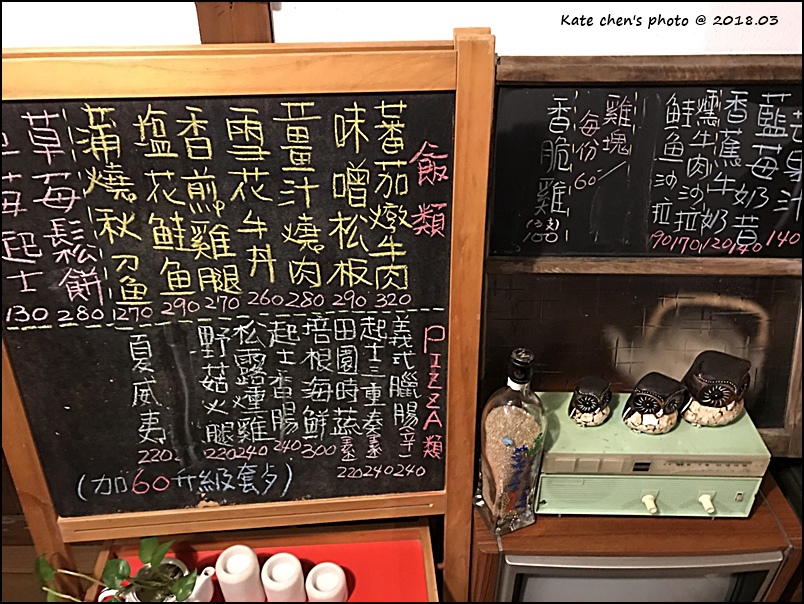 Kate chen's photo @ 2018.03
飯類
蕃茄燉牛肉 320
味噌松板 290
薑汁燒肉 280
雪花牛丼 260
香煎雞腿 270
塩花鮭魚 290
蒲燒秋刀魚 270
草莓鬆餅 280
起士 130
PIZZA類
義式臘腸(辛) 240
起士三重奏素 240
田園時蔬素 220
培根海鮮 300
起士香腸 240
松露燻雞 240
野菇火腿 220
夏威夷 220
(加60升級套歺)
140
藍莓 140
香蕉牛奶 120
燻牛肉沙拉 170
鮭魚沙拉 190
雞塊
每份 60
香脆雞